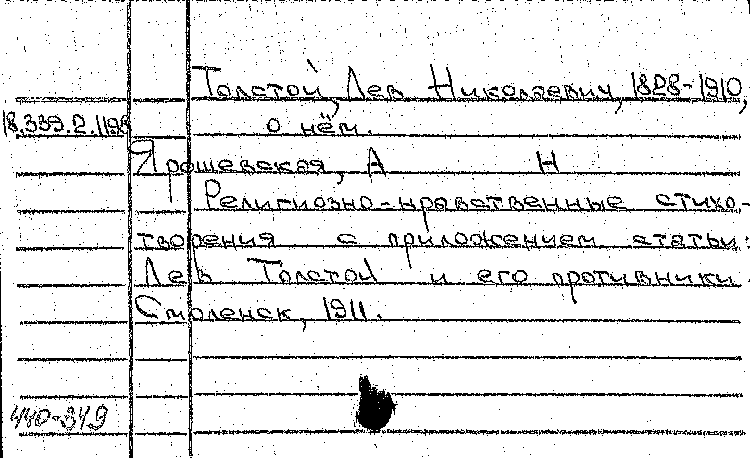 Толстой, Лев Николаевич, 1828-1910,
18.339.2.1198 о нём.
Ярошевская, А Н
Религиозно-нравственные стихо-
творения с приложением статьи:
Лев Толстой и его противники.
Смоленск, 1911.
440-349